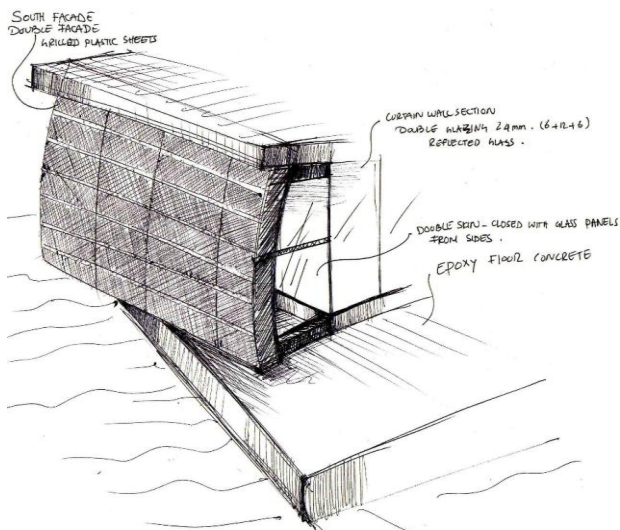 SOUTH FACADE
DOUBLE FACADE
GRILLED PLASTIC SHEETS
CURTAIN WALL SECTION
DOUBLE GLAZING 24mm. (6+12+6)
REFLECTED GLASS.
DOUBLE SKIN - CLOSED WITH GLASS PANELS
FROM SIDES.
EPOXY FLOOR CONCRETE